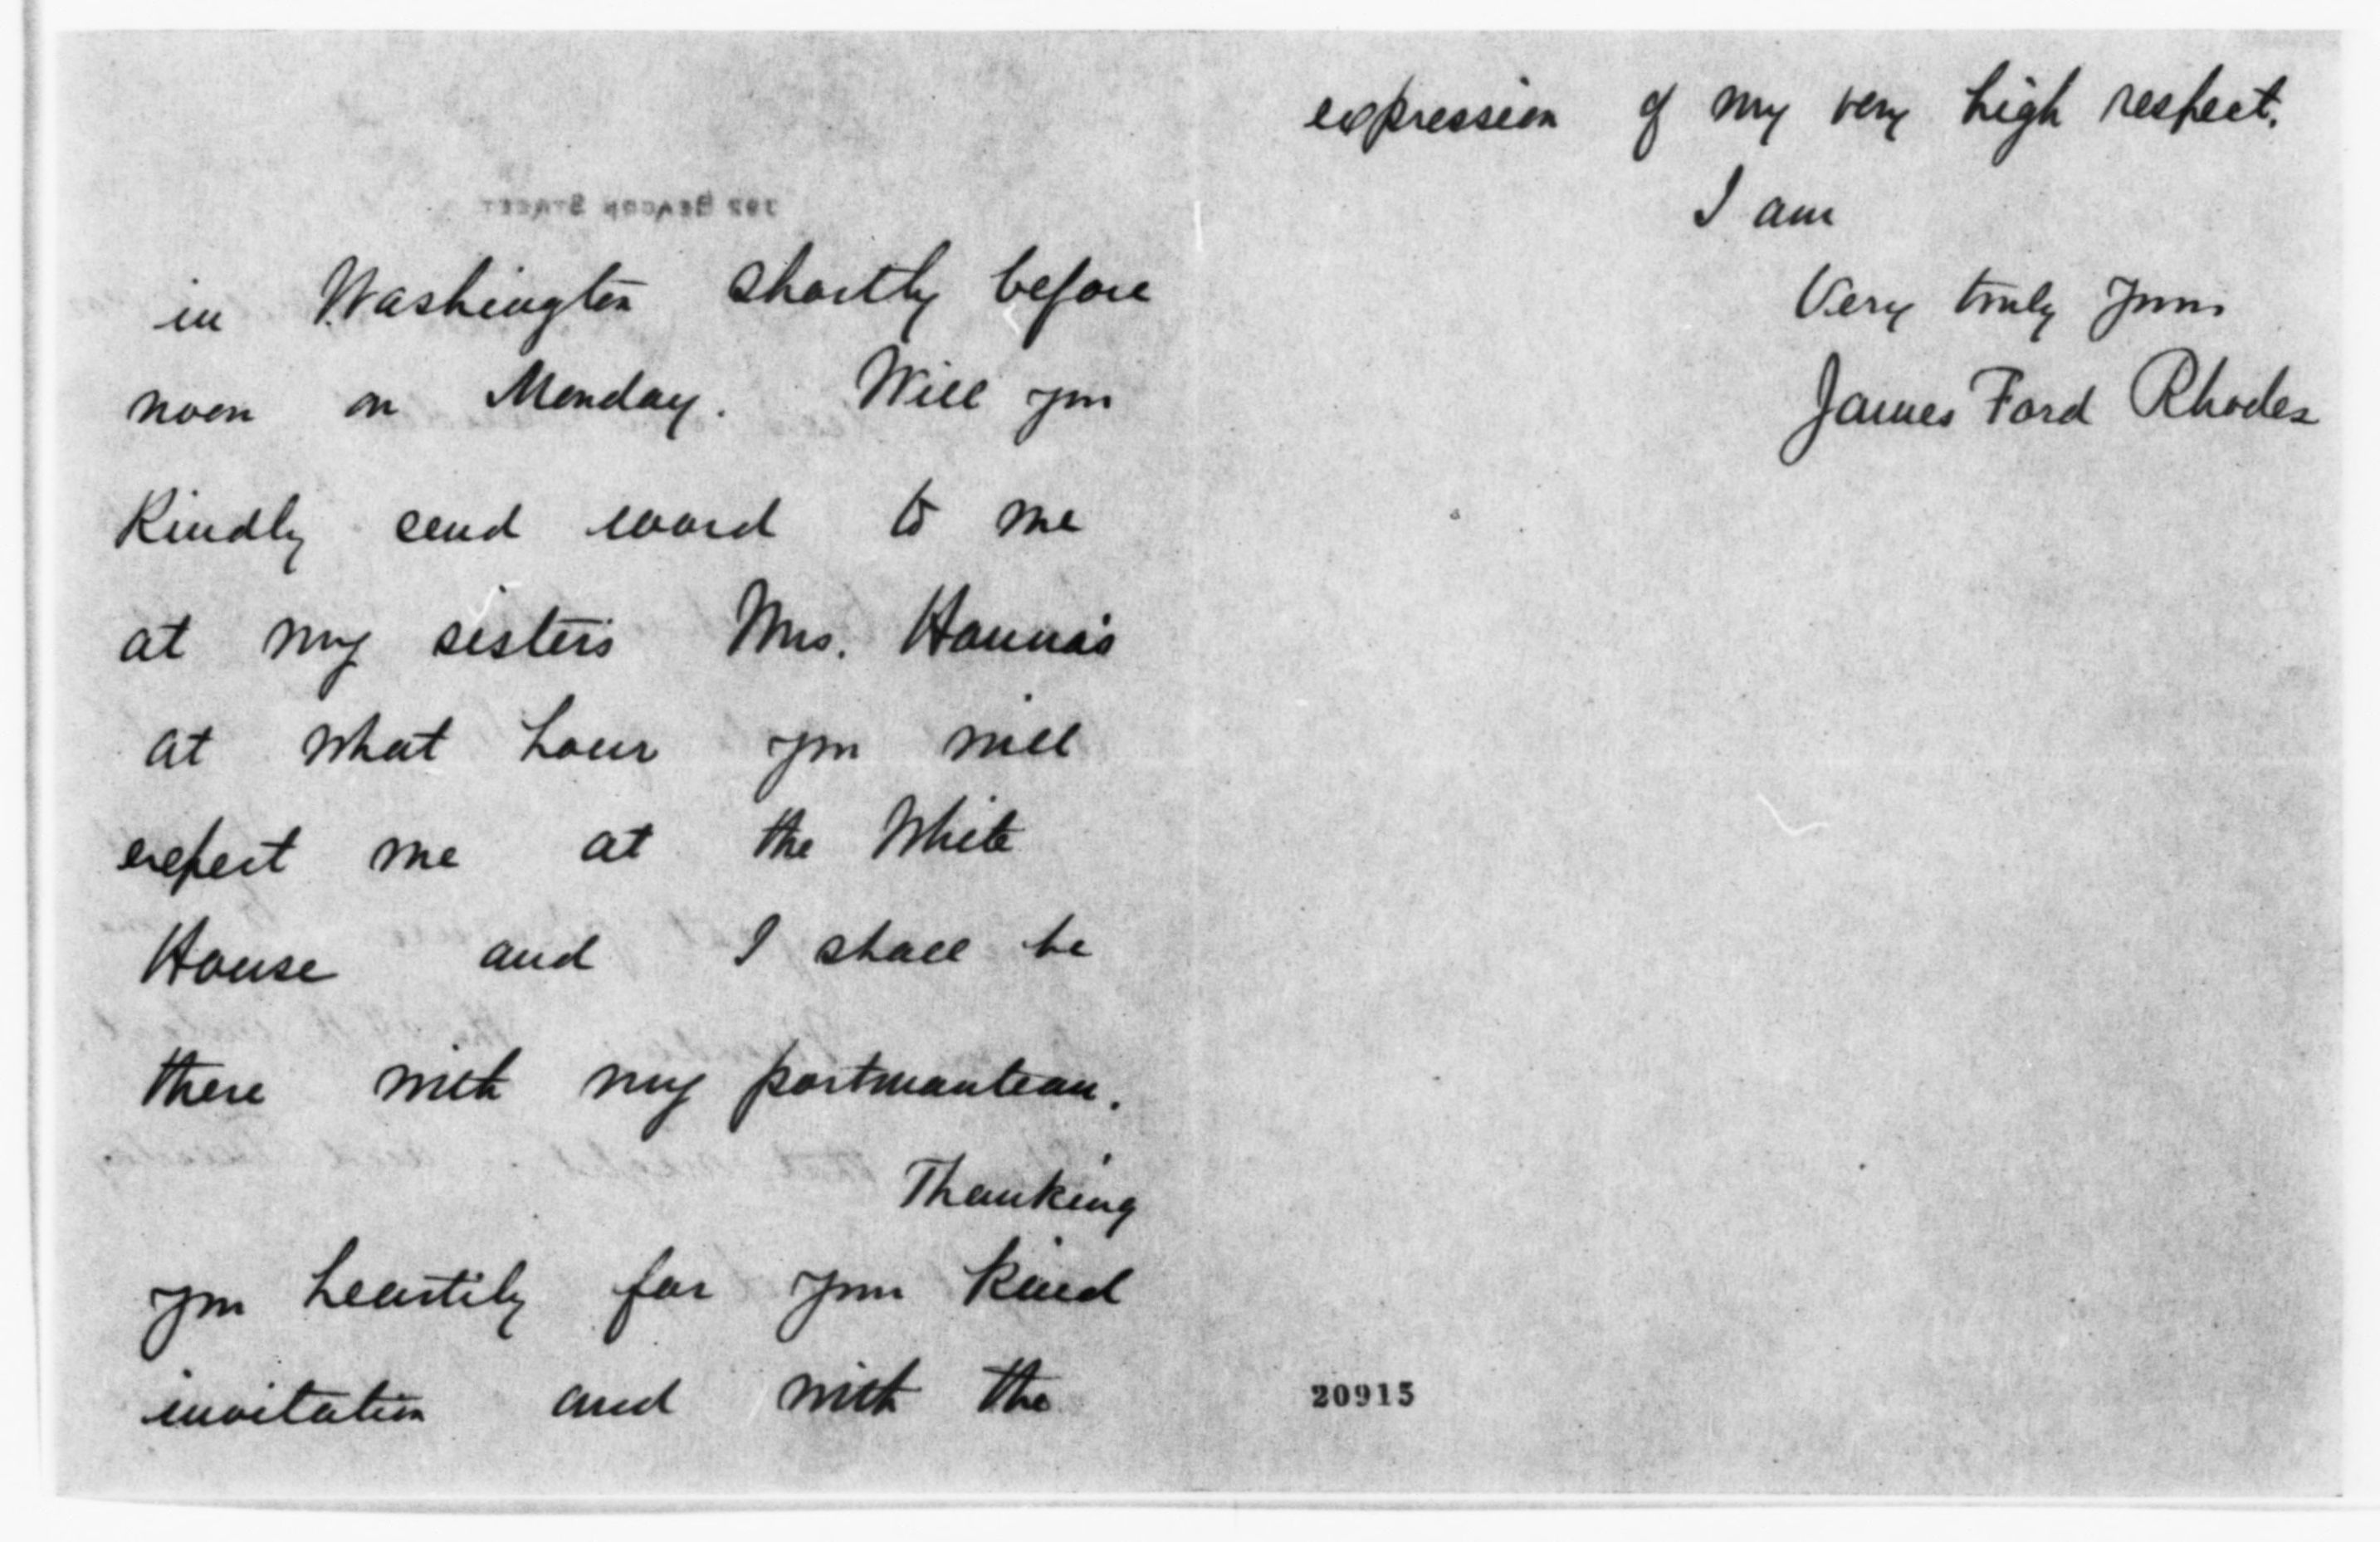 in Washington shortly before
noon on Monday. Will you
kindly send word to me
at my sister's Mrs. Hanna's
at what hour you will
expect me at the White
House and I shall be
there with my portmanteau.
Thanking
you heartily for your kind
invitation and with the
expression of my very high respect.
I am
Very truly yours
James Ford Rhodes
20915